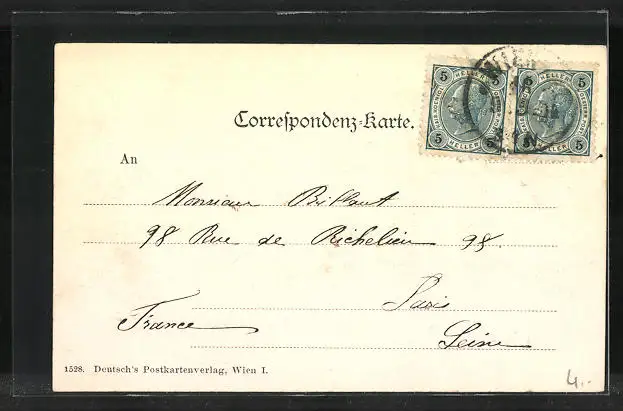 Correspondenz-Karte.
5 5
HELLER
5 5
HELLER
WIEN
An
Monsieur Brillant
98 Rue de Richelieu 98.
Paris
France
Seine
1528. Deutsch's Postkartenverlag, Wien I.
4.-